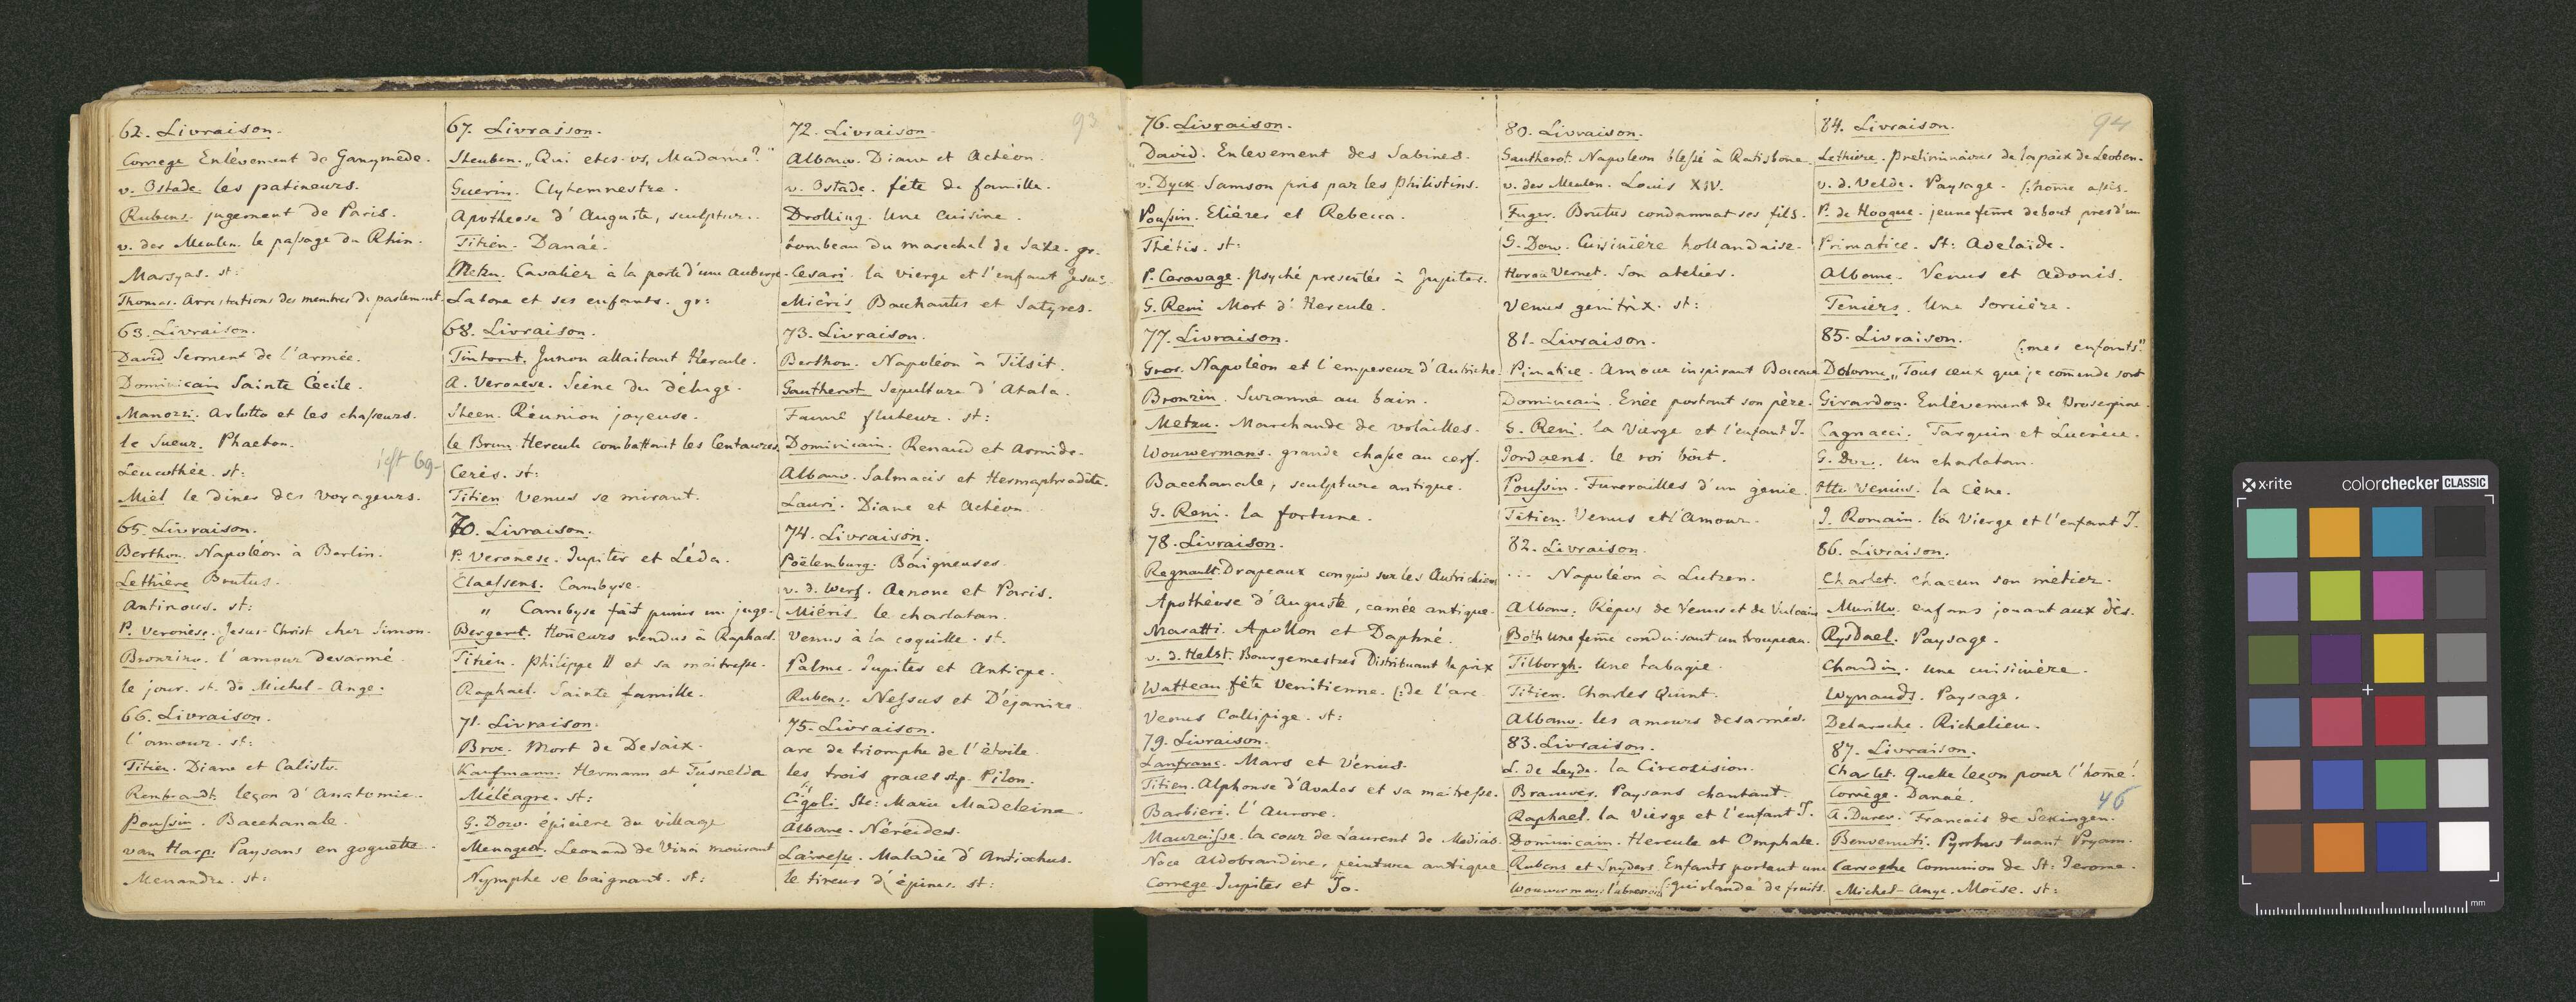 93
62. Livraison.
Correge Enlèvement de Ganymede.
v. Ostade. les patineurs.
Rubens. jugement de Paris.
v. der Meulen. le passage du Rhin.
Marsyas. st:
Thomas. Arrestations des membres du parlement.
63. Livraison.
David Serment de l'armée.
Dominicain Sainte Cécile.
Manozzi. Arlotto et les chasseurs.
le Sueur. Phaeton.
Leucothée. st:
Miel le diner des voyageurs.
65. Livraison.
Berthon. Napoléon à Berlin.
Lethière Brutus.
Antinous. st:
P. Veronèse. Jesus-Christ chez Simon.
Bronzino. l'amour desarmé.
le jour. st. de Michel-Ange.
66. Livraison.
l'amour. st:
Titien. Diane et Calisto.
Rembrandt. leçon d'Anatomie.
Poussin. Bacchanale.
van Harp. Paysans en goguette.
Menandre. st:
67. Livraison.
Steuben. "Qui etes-vs, Madame?"
Guerin. Clytemnestre.
Apotheose d'Auguste, sculpture.
Titien. Danaé.
Metzu. Cavalier à la porte d'une auberge.
Latone et ses enfants. gr:
68. Livraison.
Tintoret. Junon allaitant Hercule.
A. Veronese. Scène du déluge.
Steen. Réunion joyeuse.
le Brun. Hercule combattant les Centaures.
ist 69-
Cerès. st:
Titien Venus se mirant.
70. Livraison.
P. Veronese. Jupiter et Léda.
Claessens. Cambyse.
" Cambyse fait punir un juge.
Bergeret. Honeurs rendus à Raphael.
Titien. Philippe II et sa maitresse.
Raphael. Sainte famille.
71. Livraison.
Broc. Mort de Desaix.
Kaufmann. Hermann et Tusnelda
Méléagre. st:
G. Dow. épiciere du village
Menageot. Leonard de Vinci mourant
Nymphe se baignant. st:
72. Livraison.
Albano. Diane et Actéon.
v. Ostade. fête de famille.
Drolling. Une Cuisine.
tombeau du marechal de Saxe. gr.
Cesari. la vierge et l'enfant Jesus.
Miéris Bacchantes et Satyres.
73. Livraison.
Berthon. Napoléon à Tilsit.
Gautherot Sepulture d'Atala.
Faune fluteur. st:
Dominicain. Renaud et Armide.
Albano. Salmacis et Hermaphrodite.
Lauri. Diane et Actéon.
74. Livraison.
Poëlemburg. Baigneuses.
v. d. Werf. Aenone et Paris.
Miéris le charlatan.
Venus à la coquille. st.
Palme. Jupiter et Antiope.
Rubens. Nessus et Déjanire
75. Livraison.
arc de triomphe de l'étoile.
les trois graces scp. Pilon.
Cigoli. Ste: Marie Madeleine.
Albane. Néréides.
Lairesse. Maladie d'Antiochus.
le tireur d'épines. st:
94
76. Livraison.
David. Enlevement des Sabines.
v. Dyck. Samson pris par les Philistins.
Poussin. Eliézer et Rebecca.
Thétis. st:
P. Caravage. Psyché presentée à Jupiter.
G. Reni Mort d'Hercule.
77. Livraison.
Gros. Napoléon et l'empereur d'Autriche.
Bronzin. Suzanne au bain.
Metzu. Marchande de volailles.
Wouwermans. grande chasse au cerf.
Bacchanale, sculpture antique.
G. Reni. la fortune.
78. Livraison.
Regnault. Drapeaux conquis sur les Autrichiens
Apothéose d'Auguste, camée antique.
Maratti. Apollon et Daphné.
v. d. Helst. Bourgemestres Distribuant le prix
Watteau fête Venitienne. (: de l'arc
Venus Callipige. st:
79. Livraison.
Lanfranc. Mars et Vénus.
Titien. Alphonse d'Avalos et sa maitresse.
Barbieri. l'Aurore.
Mauzaisse. la cour de Laurent de Medicis.
Noce Aldobrandine, peinture antique
Correge Jupiter et Io.
80. Livraison.
Gautherot. Napoleon blessé à Ratisbone.
v. der Meulen. Louis XIV.
Fuger. Brutus condamnat ses fils.
G. Dow. Cuisinière hollandaise.
Horace Vernet. Son atelier.
Venus genitrix. st:
81. Livraison.
Primatice. Amour inspirant Boccace
Dominicain. Enée portant son père.
G. Reni. la Vierge et l'enfant J.
Jordaens. le roi boit.
Poussin. Funerailles d'un genie.
Titien. Venus et l'Amour.
82. Livraison.
... Napoléon à Lutzen.
Albano. Répos de Venus et de Vulcain
Both Une feme conduisant un troupeau.
Tilborgh. Une tabagie.
Titien. Charles Quint.
Albano. les amours desarmés.
83. Livraison.
L. de Leyde. la Circozision.
Brauwer. Paysans chantant.
Raphael. la Vierge et l'enfant J.
Dominicain. Hercule et Omphale.
Rubens et Snyders. Enfants portant une
Wouwerman. l'abreuvoir (: guirlande de fruits.
84. Livraison.
Lethiere. preliminaires de la paix de Leoben.
v. d. Velde. Paysage. (: home assis.
P. de Hooque. jeune feme debout pres d'un
Primatice. St: Adelaide.
Albane. Venus et Adonis.
Teniers. Une Sorcière.
85. Livraison.
(: mes enfants"
Delorme. "Tous ceux que je comande sont
Girardon. Enlèvement de Proserpine.
Cagnacci. Tarquin et Lucrèce.
G. Dow. Un charlatan.
Otto Venius. la Cène.
J. Romain. la Vierge et l'enfant J.
86. Livraison.
Charlet. Chacun son métier.
Murillo. enfans jouant aux dès.
Rysdael. Paysage.
Chardin. une cuisinière.
Wynands. Paysage.
Delaroche. Richelieu.
87. Livraison.
Charlet. Quelle leçon pour l'home!
Corrège. Danaé.
46
A. Durer. Francois de Sekingen.
Benvenuti. Pyrrhus tuant Pryam.
Carrache Comunion de St: Jerome.
Michel-Ange. Moïse. st:
x-rite
colorchecker CLASSIC
mm